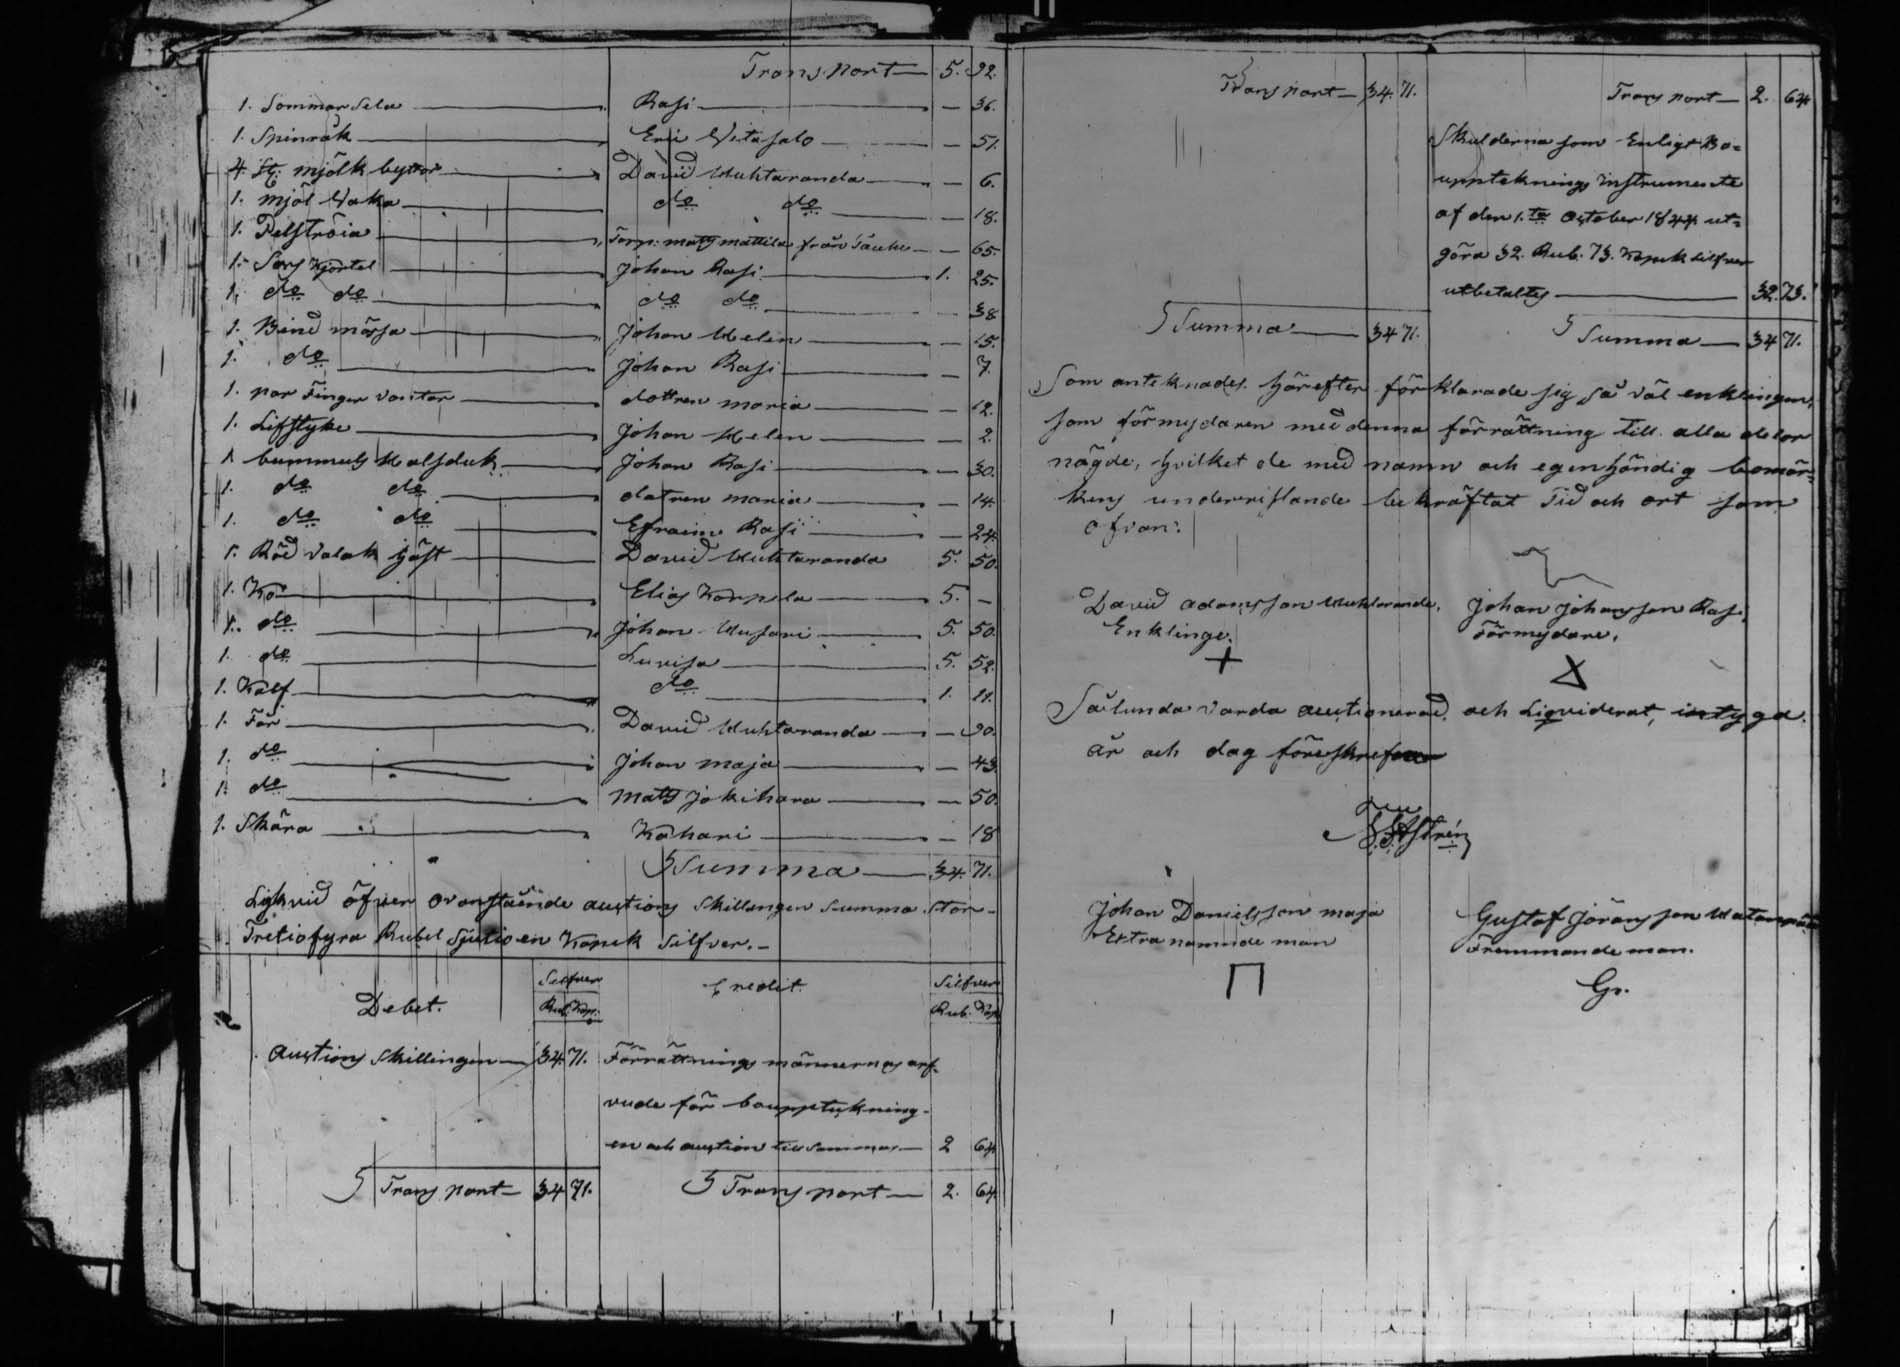 Transport 5. 92.
1. Sommar Sela Rasi — 36.
1. Spinråk Eric Vitasalo — 51.
4. st: mjölk byttor David Uuhtaranda — 6.
1. mjöl Waka do do — 18.
1. Pelströia Torp: matts mattila från — 65.
1. Sars Kjortel Johan Rasi 1. 25.
1. do do do do — 38
1. Bind mössa Johan Helen — 15.
1. do Johan Rasi — 7.
1. par Finger vantar dottren maria — 12.
1. Lifstyke Johan Helen — 2.
1. bummuls Halsduk Johan Rasi — 30.
1. do do dotren maria — 14.
1. do do Efraim Rasi — 24.
1. Röd Valak Häst David Uuhtaranda 5. 50.
1. Ko Elias Korpela 5. —
1. do Johan 5. 50.
1. do Lovisa 5. 52.
1. Kalf do 1. 11.
1. Får David Uuhtaranda — 90.
1. do Johan maja — 43.
1. do Matts Jokihara — 50.
1. Skära Kahari — 18
Summa 34. 71.
Likvid öfver ovanstående auctions Skillingen Summa stor
Tretiofyra Rubel Sjutio en Kopek Silfver.
Debet. Silfver Credit. Silfver
Rub. Kop. Rub. Kop.
Auctions Skillingen 34. 71. Förrättnings männernas arf-
vude för bouppteckning-
en och auction till sammans 2 64
Transport 34 71. Transport 2. 64
Transport 34. 71. Transport 2. 64
Skulderna som Enligt Bo=
uppteknings Instrumente
af den 1.ta October 1844 ut=
göra 32. Rub. 73. Kopek Silfver
utbetaltes 32. 73.
Summa 34 71. Summa 34 71.
Som anteknades. Härefter förklarade sig så väl enklingen,
som förmydaren med denna förrättning till alla delor
nögde, hvilket de med namn och egenhändig bomär=
kens underrislande bekräftat Tid och ort som
ofvan:
David Adamsson Uuhtaranda, Johan Johansson Rasi,
Enklinge. Förmydare.
Sålunda varda auctionerad, och Liqviderat, intyga.
år och dag föreskrefna
Johan Danielsson maja Gustaf Jöransson
Extra nämnde man Främmande man.
Gr.